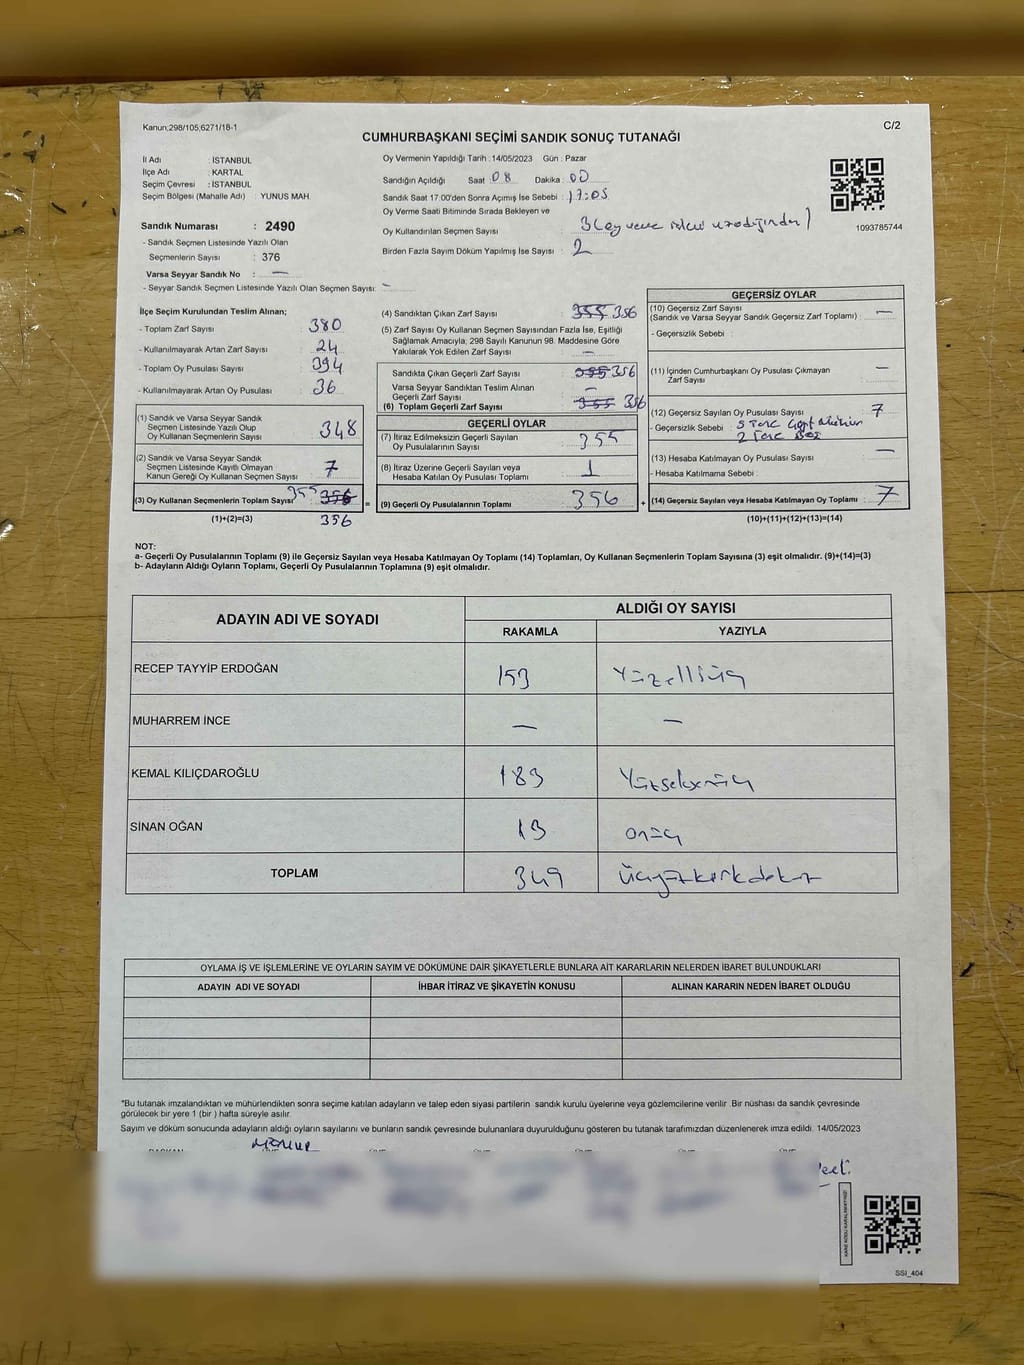 Kanun;298/105;6271/18-1
C/2
CUMHURBAŞKANI SEÇİMİ SANDIK SONUÇ TUTANAĞI
İl Adı : İSTANBUL
İlçe Adı : KARTAL
Seçim Çevresi : İSTANBUL
Seçim Bölgesi (Mahalle Adı) YUNUS MAH.
Sandık Numarası : 2490
- Sandık Seçmen Listesinde Yazılı Olan
Seçmenlerin Sayısı : 376
Varsa Seyyar Sandık No : —
- Seyyar Sandık Seçmen Listesinde Yazılı Olan Seçmen Sayısı: -
Oy Vermenin Yapıldığı Tarih : 14/05/2023 Gün : Pazar
Sandığın Açıldığı Saat : 08 Dakika : 00
Sandık Saat 17.00'den Sonra Açımış İse Sebebi : 17:05
Oy Verme Saati Bitiminde Sırada Bekleyen ve
Oy Kullandırılan Seçmen Sayısı : 3
Birden Fazla Sayım Döküm Yapılmış İse Sayısı : 2
1093785744
İlçe Seçim Kurulundan Teslim Alınan;
- Toplam Zarf Sayısı : 380
- Kullanılmayarak Artan Zarf Sayısı : 24
- Toplam Oy Pusulası Sayısı : 394
- Kullanılmayarak Artan Oy Pusulası : 36
(1) Sandık ve Varsa Seyyar Sandık
Seçmen Listesinde Yazılı Olup
Oy Kullanan Seçmenlerin Sayısı : 348
(2) Sandık ve Varsa Seyyar Sandık
Seçmen Listesinde Kayıtlı Olmayan
Kanun Gereği Oy Kullanan Seçmen Sayısı : 7
(3) Oy Kullanan Seçmenlerin Toplam Sayısı : 355 356 =
(1)+(2)=(3) 356
(4) Sandıktan Çıkan Zarf Sayısı : 355 356
(5) Zarf Sayısı Oy Kullanan Seçmen Sayısından Fazla İse, Eşitliği
Sağlamak Amacıyla, 298 Sayılı Kanunun 98. Maddesine Göre
Yakılarak Yok Edilen Zarf Sayısı : —
Sandıkta Çıkan Geçerli Zarf Sayısı : 355 356
Varsa Seyyar Sandıktan Teslim Alınan
Geçerli Zarf Sayısı : —
(6) Toplam Geçerli Zarf Sayısı : 355 356
GEÇERLİ OYLAR
(7) İtiraz Edilmeksizin Geçerli Sayılan
Oy Pusulasının Sayısı : 355
(8) İtiraz Üzerine Geçerli Sayılan veya
Hesaba Katılan Oy Pusulası Toplamı : 1
(9) Geçerli Oy Pusulalarının Toplamı : 356 +
GEÇERSİZ OYLAR
(10) Geçersiz Zarf Sayısı
(Sandık ve Varsa Seyyar Sandık Geçersiz Zarf Toplamı) : —
- Geçersizlik Sebebi :
(11) İçinden Cumhurbaşkanı Oy Pusulası Çıkmayan
Zarf Sayısı : —
(12) Geçersiz Sayılan Oy Pusulası Sayısı : 7
- Geçersizlik Sebebi :
(13) Hesaba Katılmayan Oy Pusulası Sayısı : —
- Hesaba Katılmama Sebebi :
(14) Geçersiz Sayılan veya Hesaba Katılmayan Oy Toplamı : 7
(10)+(11)+(12)+(13)=(14)
NOT:
a- Geçerli Oy Pusulalarının Toplamı (9) ile Geçersiz Sayılan veya Hesaba Katılmayan Oy Toplamı (14) Toplamları, Oy Kullanan Seçmenlerin Toplam Sayısına (3) eşit olmalıdır. (9)+(14)=(3)
b- Adayların Aldığı Oyların Toplamı, Geçerli Oy Pusulalarının Toplamına (9) eşit olmalıdır.
ADAYIN ADI VE SOYADI
ALDIĞI OY SAYISI
RAKAMLA YAZIYLA
RECEP TAYYİP ERDOĞAN 153 Yüzelliüç
MUHARREM İNCE — —
KEMAL KILIÇDAROĞLU 183 Yüzseksenüç
SİNAN OĞAN 13 onüç
TOPLAM 349 Üçyüzkırkdokuz
OYLAMA İŞ VE İŞLEMLERİNE VE OYLARIN SAYIM VE DÖKÜMÜNE DAİR ŞİKAYETLERLE BUNLARA AİT KARARLARIN NELERDEN İBARET BULUNDUKLARI
ADAYIN ADI VE SOYADI İHBAR İTİRAZ VE ŞİKAYETİN KONUSU ALINAN KARARIN NEDEN İBARET OLDUĞU
*Bu tutanak imzalandıktan ve mühürlendikten sonra seçime katılan adayların ve talep eden siyasi partilerin sandık kurulu üyelerine veya gözlemcilerine verilir. Bir nüshası da sandık çevresinde
görülecek bir yere 1 (bir ) hafta süreyle asılır.
Sayım ve döküm sonucunda adayların aldığı oyların sayılarını ve bunların sandık çevresinde bulunanlara duyurulduğunu gösteren bu tutanak tarafımızdan düzenlenerek imza edildi. 14/05/2023
SSI_404